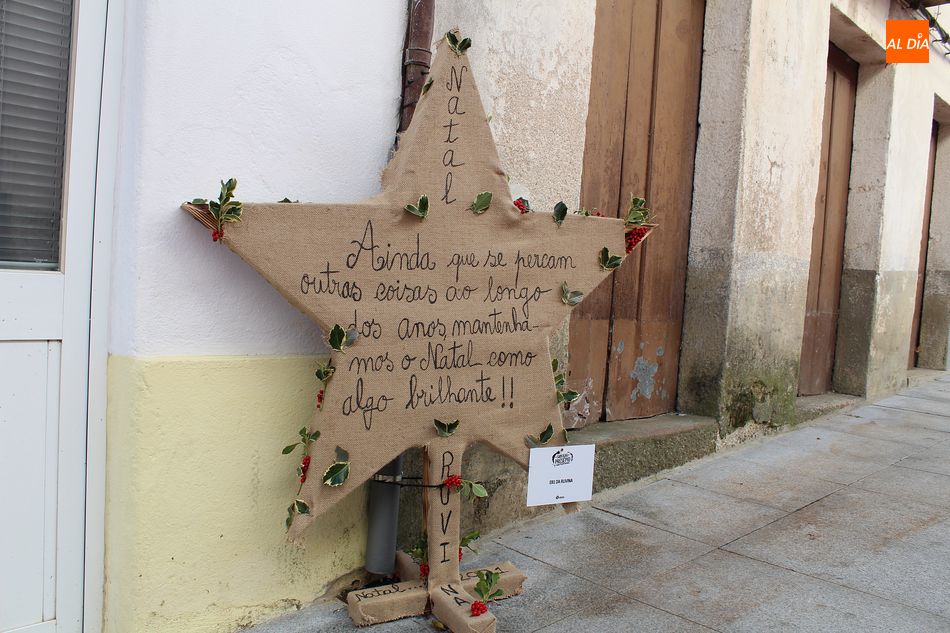 AL DÍA
Natal
Ainda que se percam
outras coisas ao longo
dos anos, mantenha-
mos o Natal como
algo brilhante!!
RUVINA
Natal 2021
EB1 DA RUVINA